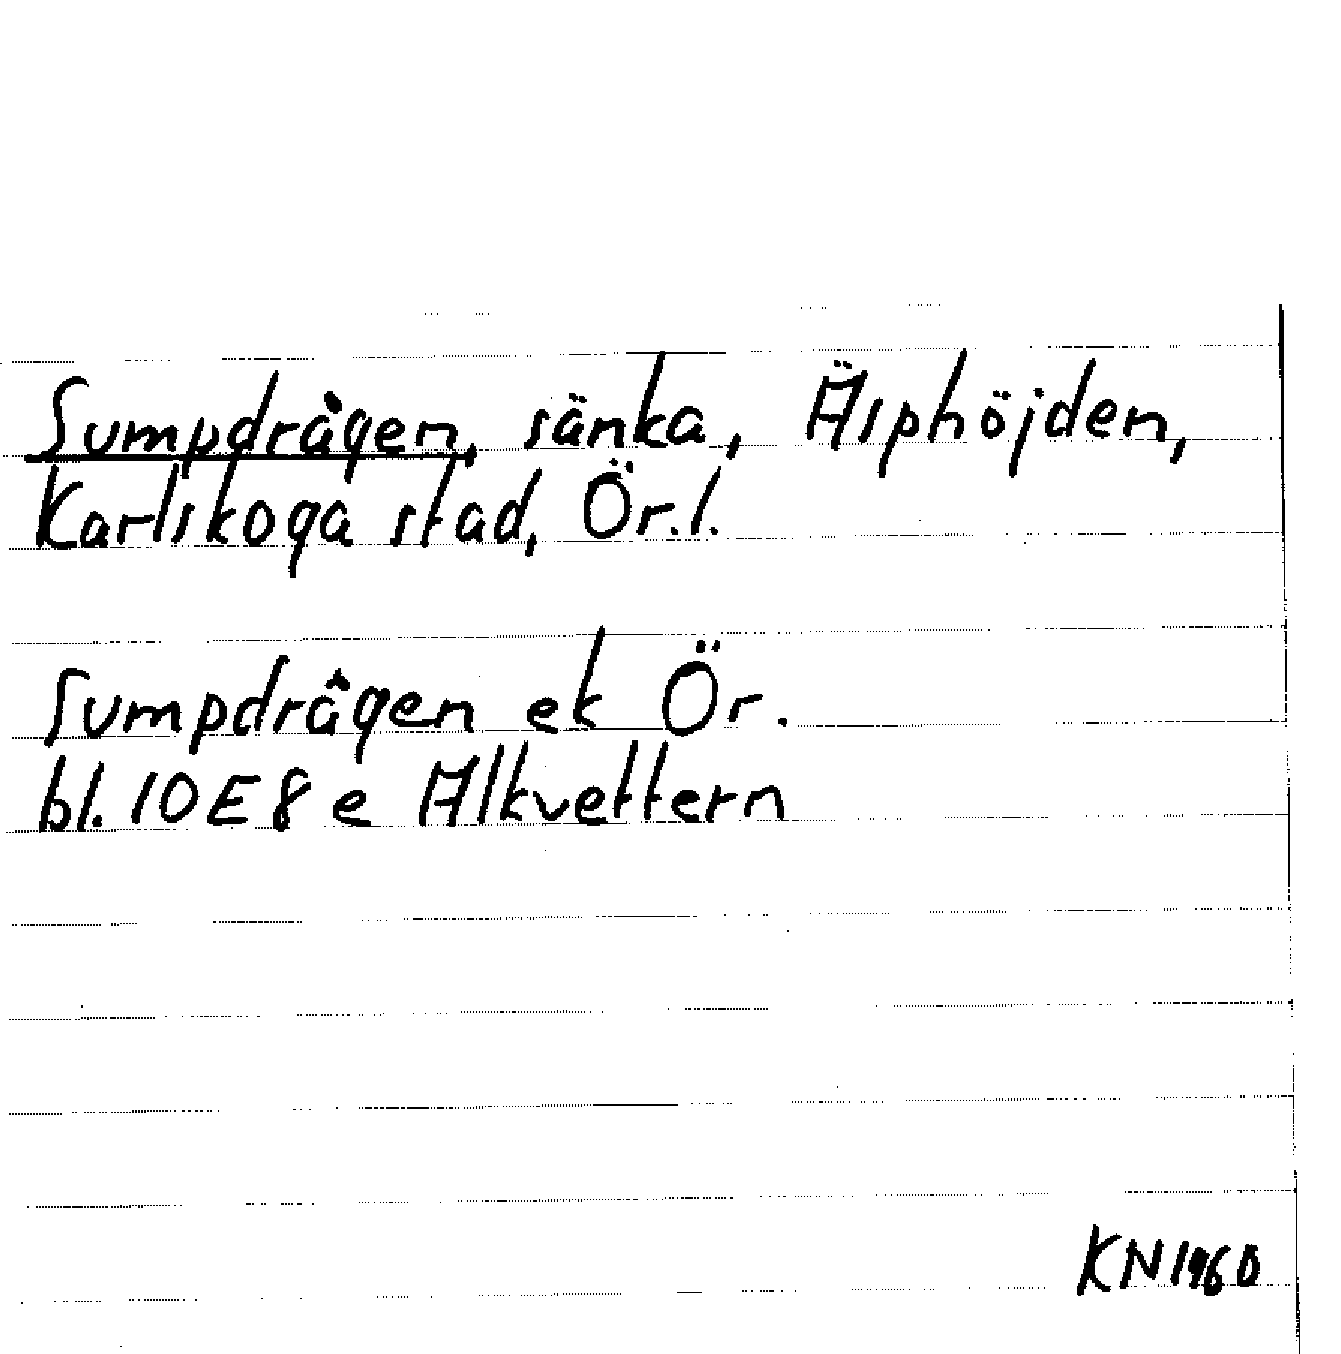 Sumpdrågen, sänka, Äsphöjden,
Karlskoga stad, Ör.l.
Sumpdrågen ek Ör.
bl. 10E8e Alkvettern
KN1960